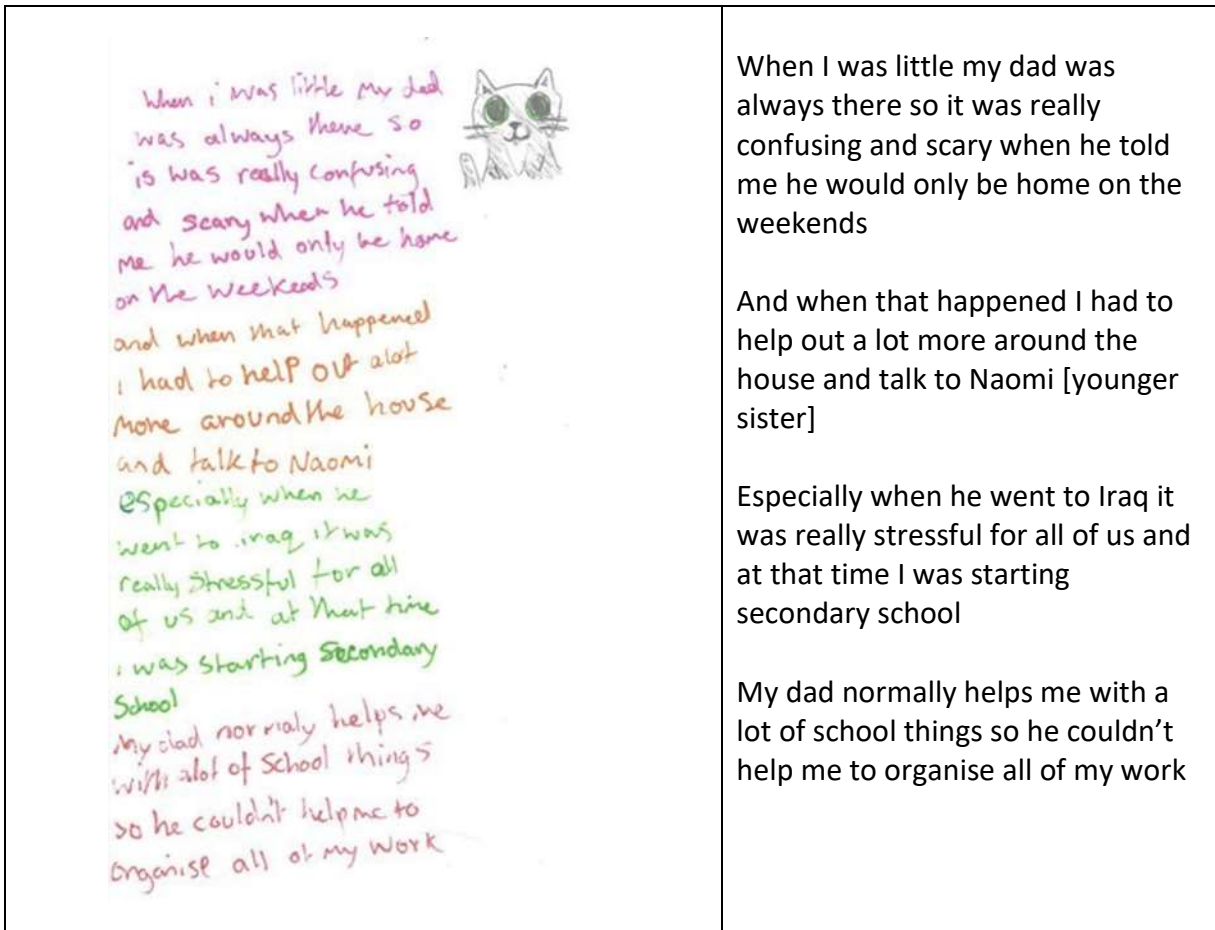 When i was little my dad
was always there so
is was really confusing
and scary when he told
me he would only be home
on the weekends
and when that happened
i had to help out alot
more around the house
and talk to Naomi
especially when he
went to iraq it was
really stressful for all
of us and at that time
i was starting secondary
School
my dad normaly helps me
with alot of School things
so he couldn't help me to
organise all of my work
When I was little my dad was
always there so it was really
confusing and scary when he told
me he would only be home on the
weekends
And when that happened I had to
help out a lot more around the
house and talk to Naomi [younger
sister]
Especially when he went to Iraq it
was really stressful for all of us and
at that time I was starting
secondary school
My dad normally helps me with a
lot of school things so he couldn’t
help me to organise all of my work